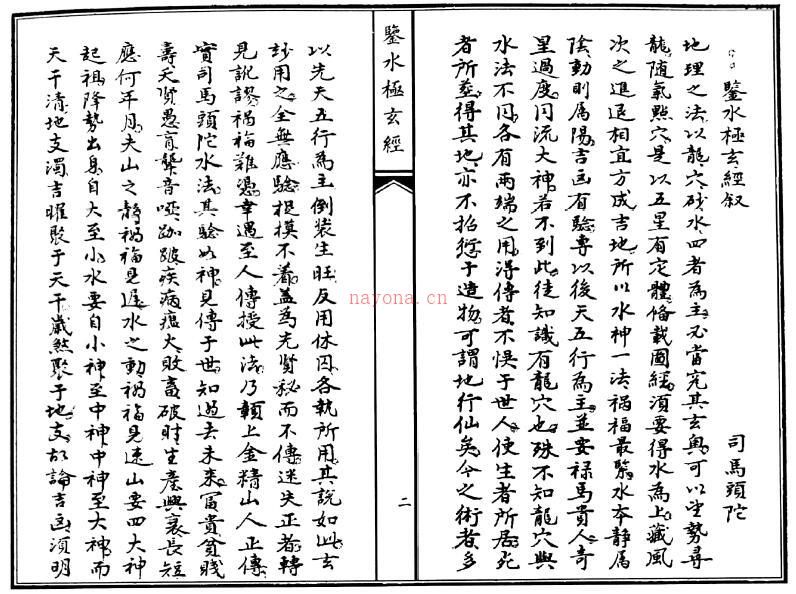 鑒水極玄經叙
司馬頭陀
地理之法以龍穴砂水四者為主尤當究其玄奧可以坐勢尋
龍隨氣點穴是以五星有定體備載圖經須要得水為上藏風
次之進退相宜方成吉地所以水神一法禍福最驗水本静属
陰動則属陽吉凶有驗專以後天五行為主並要禄馬貴人奇
星過度同流大神若不到此徒知識有龍穴也殊不知龍穴與
水法不同各有兩端之用得傳者不悞于世人使生者所居死
者所葬得其地亦不招愆于造物可謂地行仙矣今之術者多
鑒水極玄經
二
以先天五行為主倒装生旺反用休囚各執所用其說如此玄
妙用之全無應驗捉摸不着盖為先賢秘而不傳迷失正者轉
見訛謬禍福難憑幸遇至人傳授此法乃頼上金精山人正傳
實司馬頭陀水法其驗如神見傳于世知過去未来冨貴貧賤
壽夭賢愚盲聾音啞跏跛疾病瘟火敗畜破財生産興衰長短
應何年月夫山之静禍福見遲水之動禍福見速山要四大神
起祖降勢出身自大至小水要自小神至中神中神至大神而
天干清地支濁吉曜聚于天干歲煞聚于地支故論吉凶須明
nayona.cn